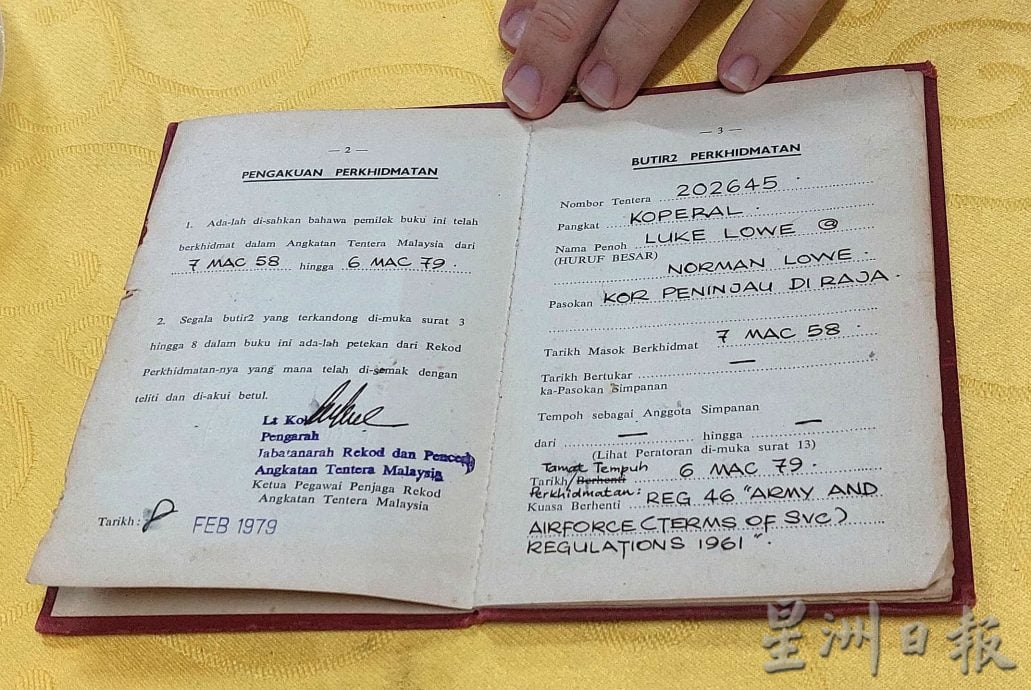 — 2 —
PENGAKUAN PERKHIDMATAN
1. Ada-lah di-sahkan bahawa pemilek buku ini telah
berkhidmat dalam Angkatan Tentera Malaysia dari
7 MAC 58 hingga 6 MAC 79.
2. Segala butir2 yang terkandong di-muka surat 3
hingga 8 dalam buku ini ada-lah petekan dari Rekod
Perkhidmatan-nya yang mana telah di-semak dengan
teliti dan di-akui betul.
Lt Kol
Pengarah
Jabatanarah Rekod dan
Angkatan Tentera Malaysia
Ketua Pegawai Penjaga Rekod
Angkatan Tentera Malaysia
Tarikh: 8 FEB 1979
— 3 —
BUTIR2 PERKHIDMATAN
Nombor Tentera 202645
Pangkat KOPERAL
Nama Penoh LUKE LOWE @
(HURUF BESAR)
NORMAN LOWE
Pasokan KOR PENINJAU DI RAJA
Tarikh Masok Berkhidmat 7 MAC 58
Tarikh Bertukar —
ka-Pasokan Simpanan
Tempoh sebagai Anggota Simpanan
dari — hingga —
(Lihat Peratoran di-muka surat 13)
Tamat Tempuh
Tarikh/Berhenti 6 MAC 79.
Perkhidmatan:
Kuasa Berhenti REG 46 "ARMY AND
AIRFORCE (TERMS OF SVC)
REGULATIONS 1961".
星洲日報